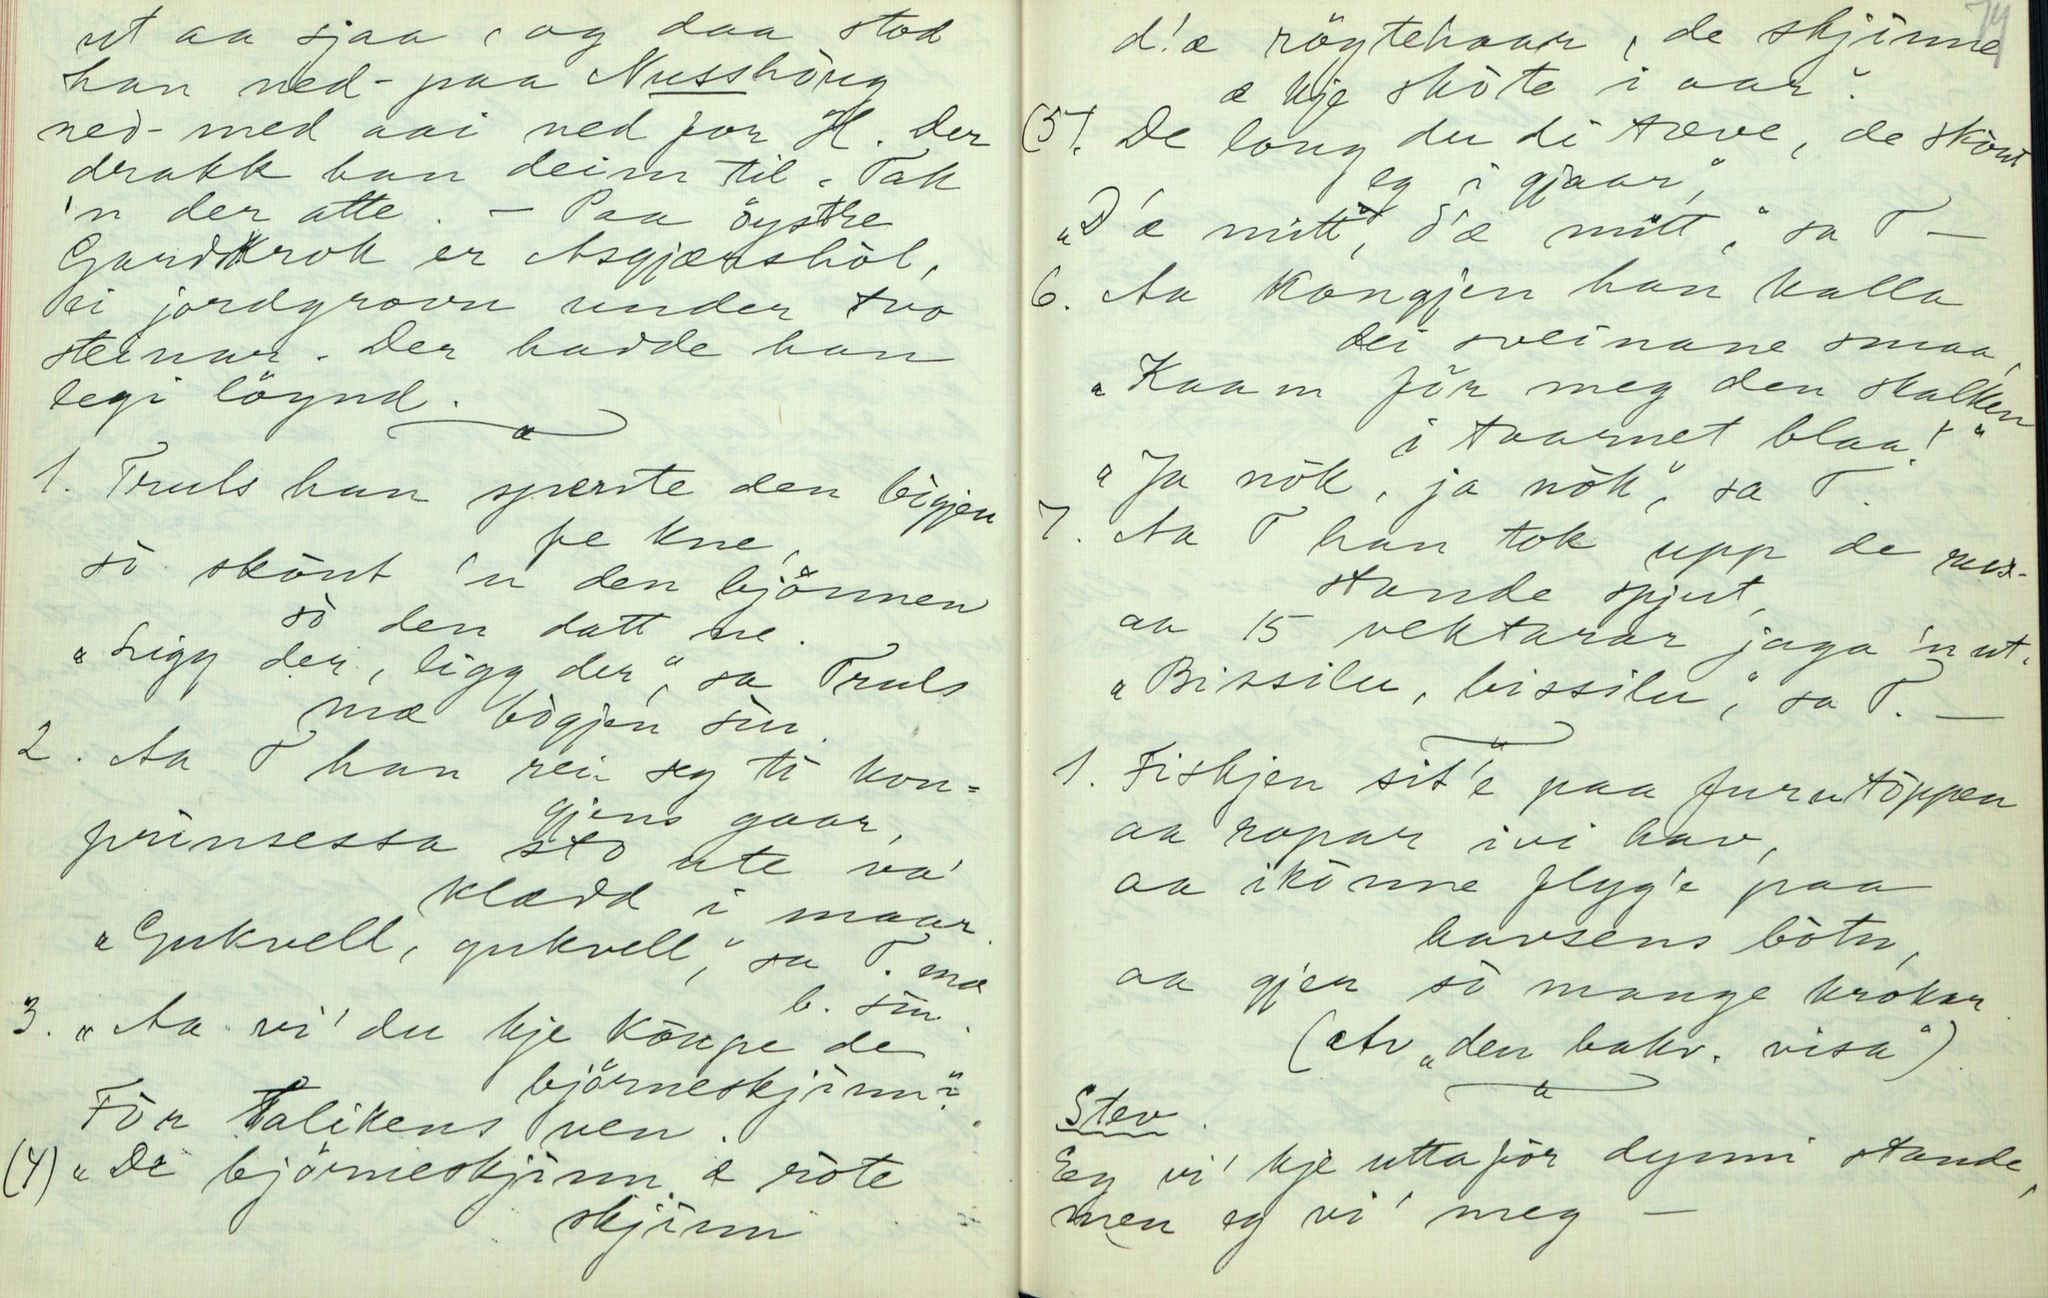 ut aa sjaa, og daa stod
han ned-paa Nusshöug
ned-med aai ned for H. Der
drakk han deim til. Tak
'n der atte. – Paa öystre
Gardkrok er Asgjærshöl,
ei jordgrovn under tvo
steinar. Der hadde han
legi löynd.
1. Truls han spente den bogjen
fe kne,
so skönt 'n den björnen
so den datt ne.
"Ligg der, ligg der", sa Truls
mæ bogjen sin.
2. Aa T han rei seg ti kon-
gjens gaar,
prinsessa sto ute va'
klædd i maar.
"Gukvell, gukvell", sa T. mæ
b. sin.
3. "Aa vi' du kje köupe de
björneskjinn".
För Talikens ven.
(4) "De björneskjinn æ röte
skjinn
74
d'æ röytehaar, de skjinne
æ kje sköte i aar".
(5). De loug du di tæve, de sköut
eg i gjaar",
"D'æ mitt, d'æ mitt", sa T –
6. Aa kongjen han kalla
dei sveinane smaa,
"Kaam för meg den skalken
i taarnet blaa!"
"Ja nök, ja nök", sa T.
7. Aa T han tok upp de rus-
stande spjut,
aa 15 vektarar jaga 'n ut.
"Bissilu, bissilu", sa T. –
1. Fiskjen sit'e paa furutöppen
aa ropar ivi hav,
aa ikönne flyg'e paa
havsens botn,
aa gjer so mange krokar
(Av "den bakv. visa")
Stev.
Eg vi' kje uttaför dynni stande,
men eg vi' meg –